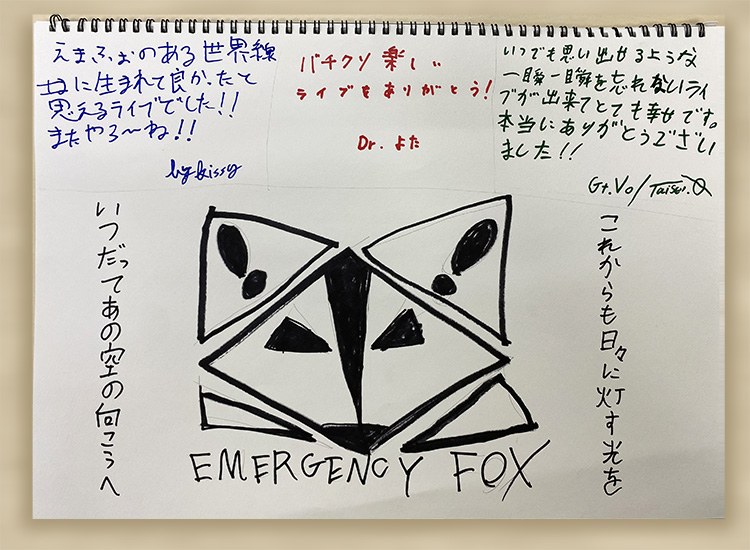 えまふぉのある世界線
に生まれて良かったと
思えるライブでした!!
またやろ〜ね!!
by kissy
バチクソ楽しい
ライブをありがとう!
Dr. よた
いつでも思い出せるような
一瞬一瞬を忘れないライ
ブが出来てとても幸せです。
本当にありがとうござい
ました!!
Gt.Vo/Taisei.
これからも日々に灯す光を
いつだってあの空の向こうへ
EMERGENCY FOX